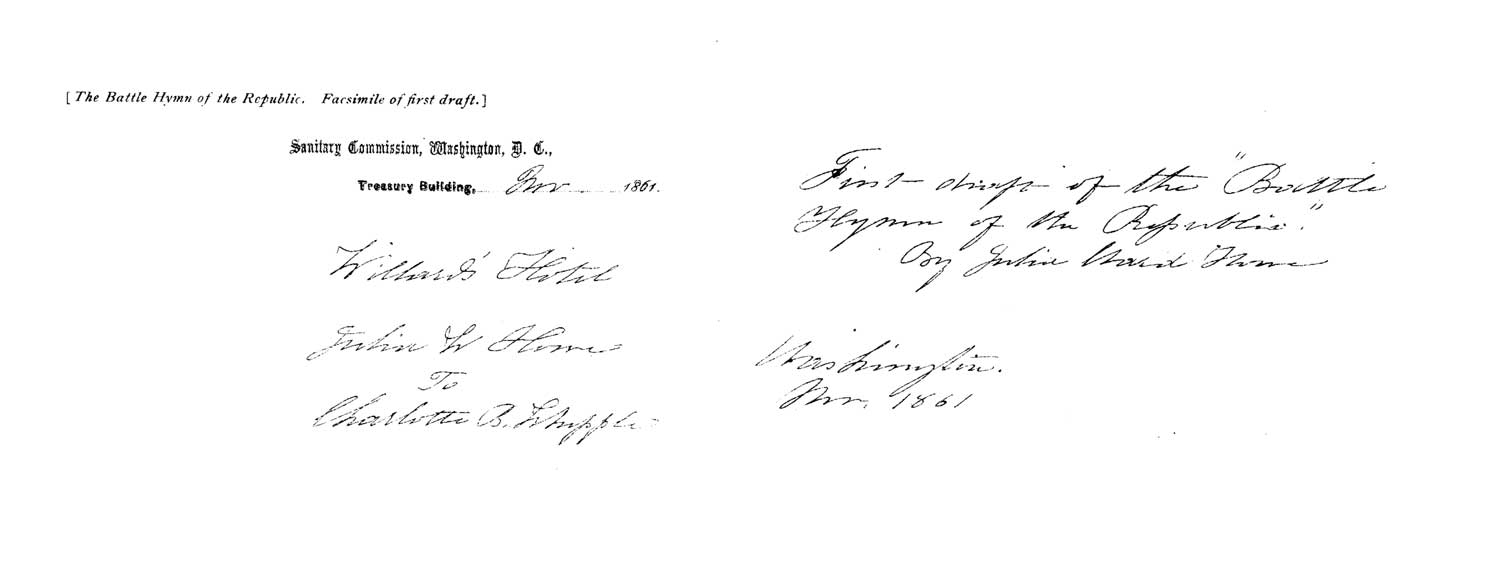 [ The Battle Hymn of the Republic. Facsimile of first draft. ]
Sanitary Commission, Washington, D. C.,
Treasury Building, Nov 1861.
Willards' Hotel
Julia W Howe
To
Charlotte B. Whipple
First draft of the "Battle
Hymn of the Republic."
By Julia Ward Howe
Washington.
Nov. 1861